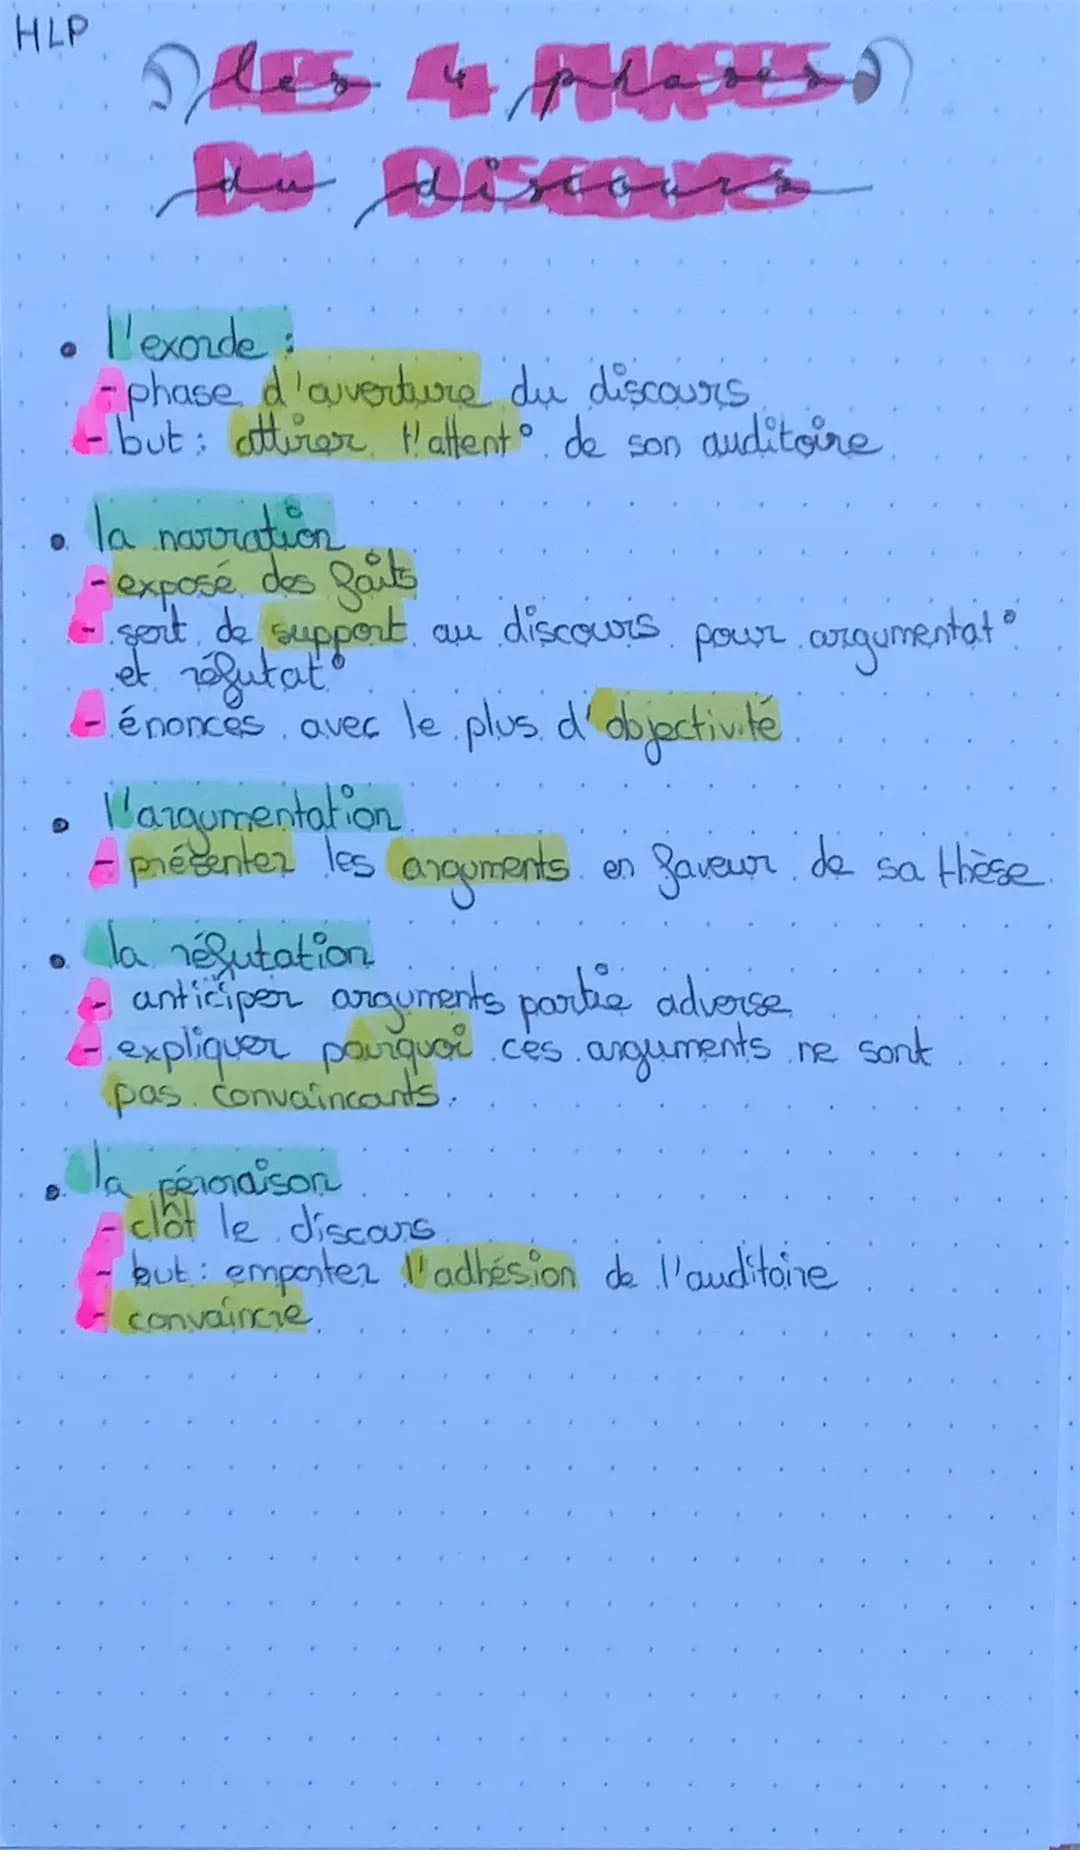 HLP
Les 4 phases
du discours
• l'exorde :
- phase d'ouverture du discours
- but : attirer l'attent° de son auditoire
• la narration
- exposé des faits
- sert de support au discours pour argumentat°
et réfutat°
- énoncés avec le plus d'objectivité
• l'argumentation
- présenter les arguments en faveur de sa thèse
• la réfutation
- anticiper arguments partie adverse
- expliquer pourquoi ces arguments ne sont
pas convaincants.
• la péroraison
- clôt le discours
- but : emporter l'adhésion de l'auditoire
- convaincre